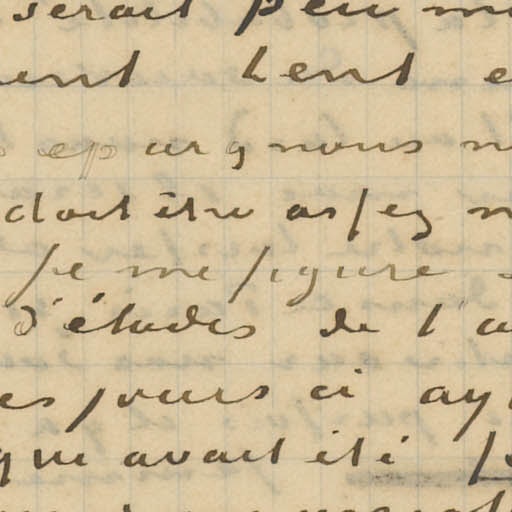 serait peu m
ent lent e
epargnons n
doit être assez n
Je me figure
d'études de l'a
es jours ci ay
qui avait été